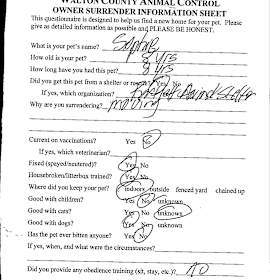 WALTON COUNTY ANIMAL CONTROL
OWNER SURRENDER INFORMATION SHEET
This questionnaire is designed to help us find a new home for your pet. Please
give as detailed information as possible and PLEASE BE HONEST.
What is your pet's name? Sophie
How old is your pet? 8 yrs
How long have you had this pet? yrs
Did you get this pet from a shelter or rescue? Yes No
If yes, which organization?
Why are you surrendering? moving
Current on vaccinations? Yes No
If yes, which veterinarian?
Fixed (spayed/neutered)? Yes No
Housebroken/litterbox trained? Yes No
Where did you keep your pet? indoors outside fenced yard chained up
Good with children? Yes No unknown
Good with cats? Yes No unknown
Good with dogs? Yes No unknown
Has the pet ever bitten anyone? Yes No
If yes, when, and what were the circumstances?
Did you provide any obedience training (sit, stay, etc.)? NO